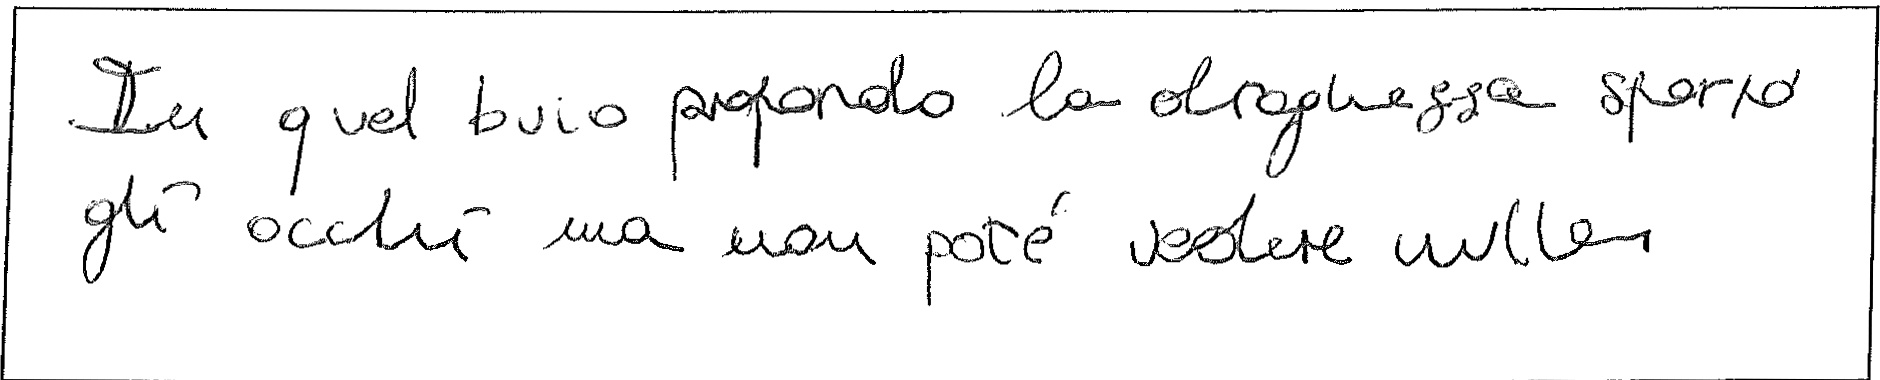 In quel buio profondo la draghessa sparpò
gli occhi ma non poté vedere nulla